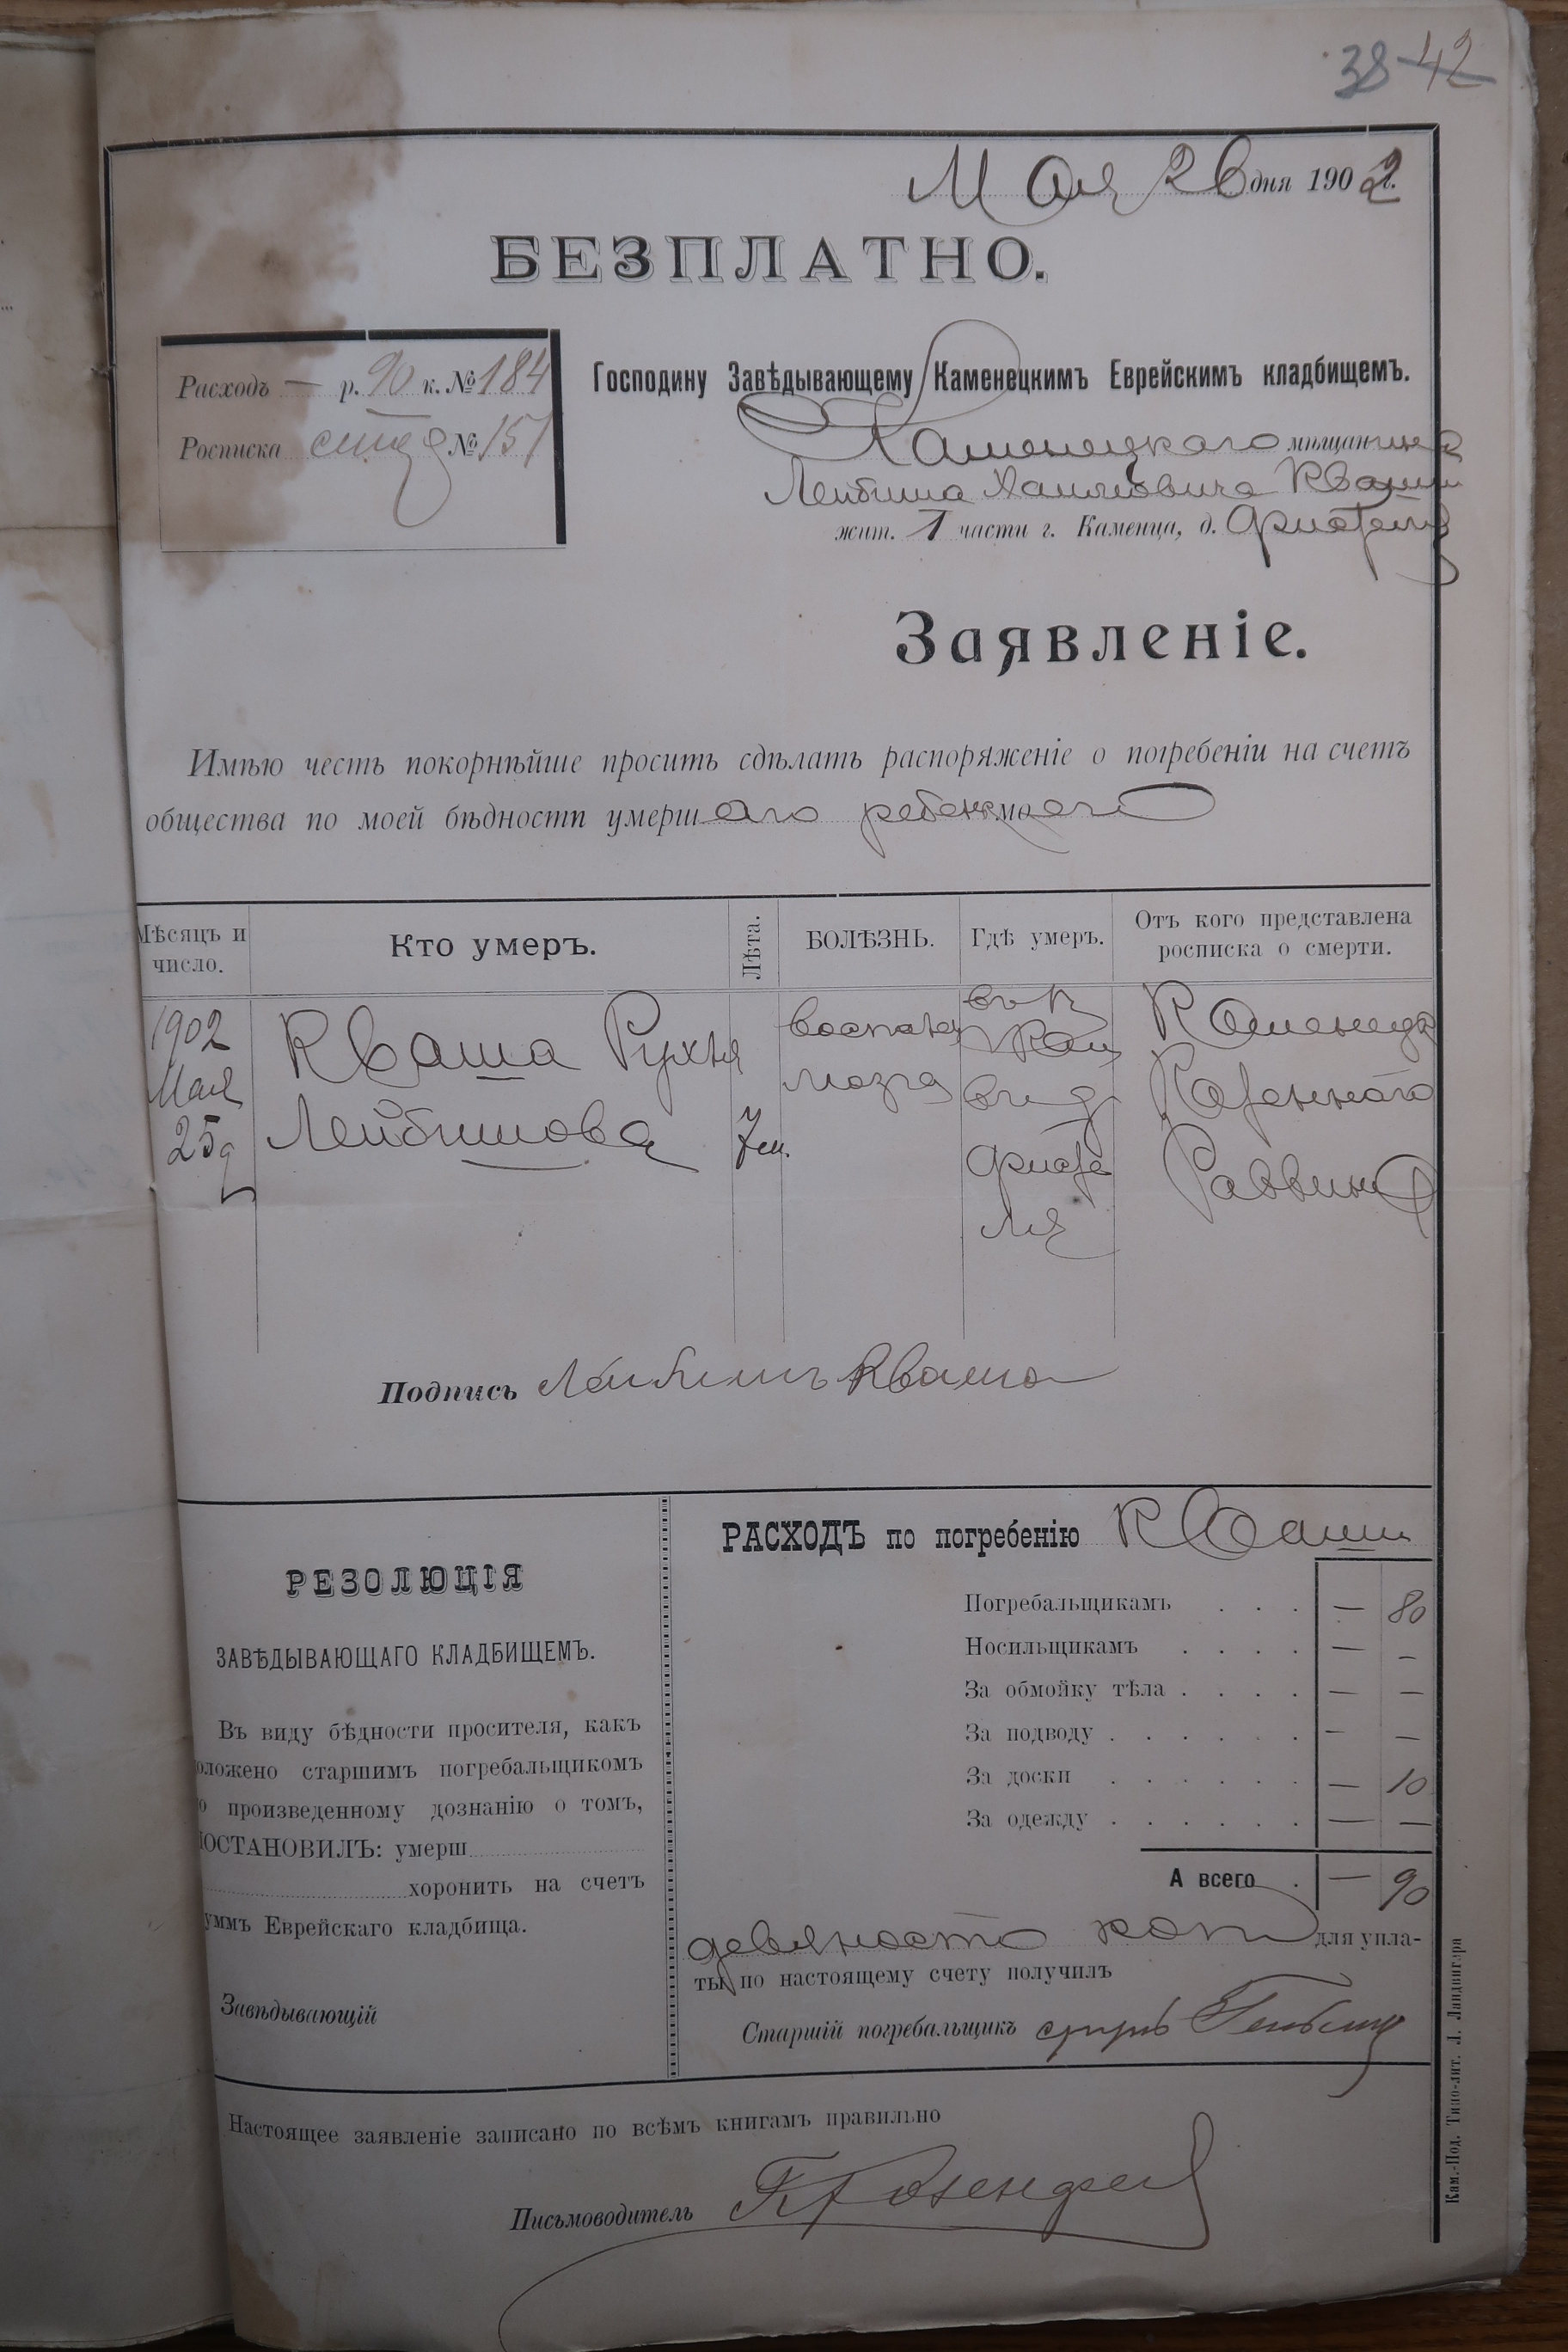 38 42
Мая 26 дня 1902 г.
БЕЗПЛАТНО.
Расходъ — р. 90 к. № 184
Росписка № 151
Господину Завѣдывающему Каменецкимъ Еврейскимъ кладбищемъ.
Каменецкаго мѣщанина
Лейбиша Кваши
жит. 1 части г. Каменца, д.
Заявленіе.
Имѣю честь покорнѣйше просить сдѣлать распоряженіе о погребеніи на счетъ
общества по моей бѣдности умершаго ребенка моего
Мѣсяцъ и число.
Кто умеръ.
Лѣта.
БОЛѢЗНЬ.
Гдѣ умеръ.
Отъ кого представлена росписка о смерти.
1902
Мая
25 д
Кваша Рухля
Лейбишова
7 м.
воспален
мозга
Каменецк
Казеннаго
Раввина
Подпись Лейбишъ Кваша
РЕЗОЛЮЦІЯ
ЗАВѢДЫВАЮЩАГО КЛАДБИЩЕМЪ.
Въ виду бѣдности просителя, какъ
оложено старшимъ погребальщикомъ
о произведенному дознанію о томъ,
ПОСТАНОВИЛЪ: умерш
хоронить на счетъ
уммъ Еврейскаго кладбища.
Завѣдывающій
РАСХОДЪ по погребенію Кваши
Погребальщикамъ . . . — 80
Носильщикамъ . . . . — –
За обмойку тѣла . . . . — —
За подводу . . . . . . — —
За доски . . . . . . — 10
За одежду . . . . . . — —
А всего . — 90
девяносто коп для упла-
ты по настоящему счету получилъ
Старшій погребальщикъ
Настоящее заявленіе записано по всѣмъ книгамъ правильно
Письмоводитель
Кам.-Под. Типо-лит. Л. Ландвигера